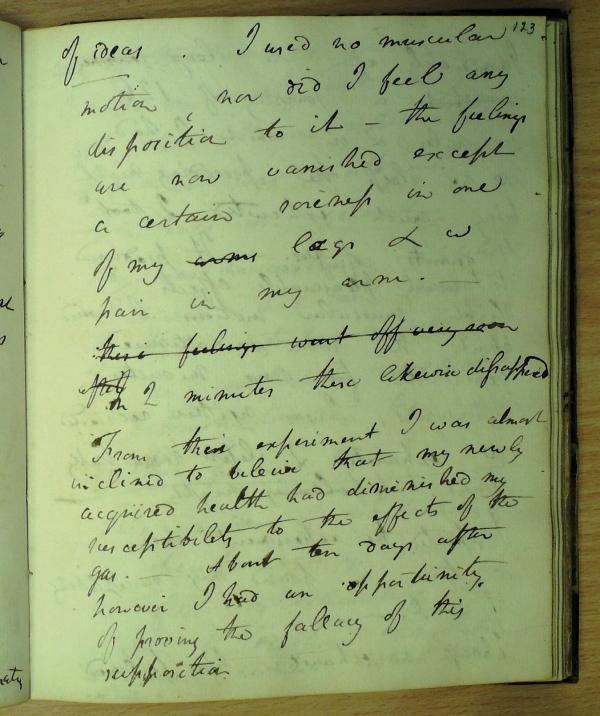 123
of ideas . I used no muscular
motion, nor did I feel any
disposition to it – the feelings
are now vanished except
a certain soreness in one
of my arms legs & a
pain in my arm. —
these feelings went off very soon
after in 2 minutes these likewise disappeared
From this experiment I was almost
inclined to beleive that my newly
acquired health had diminished my
susceptibility to the effects of the
gas. — About ten days after
however I had an opportunity
of proving the fallacy of this
supposition.